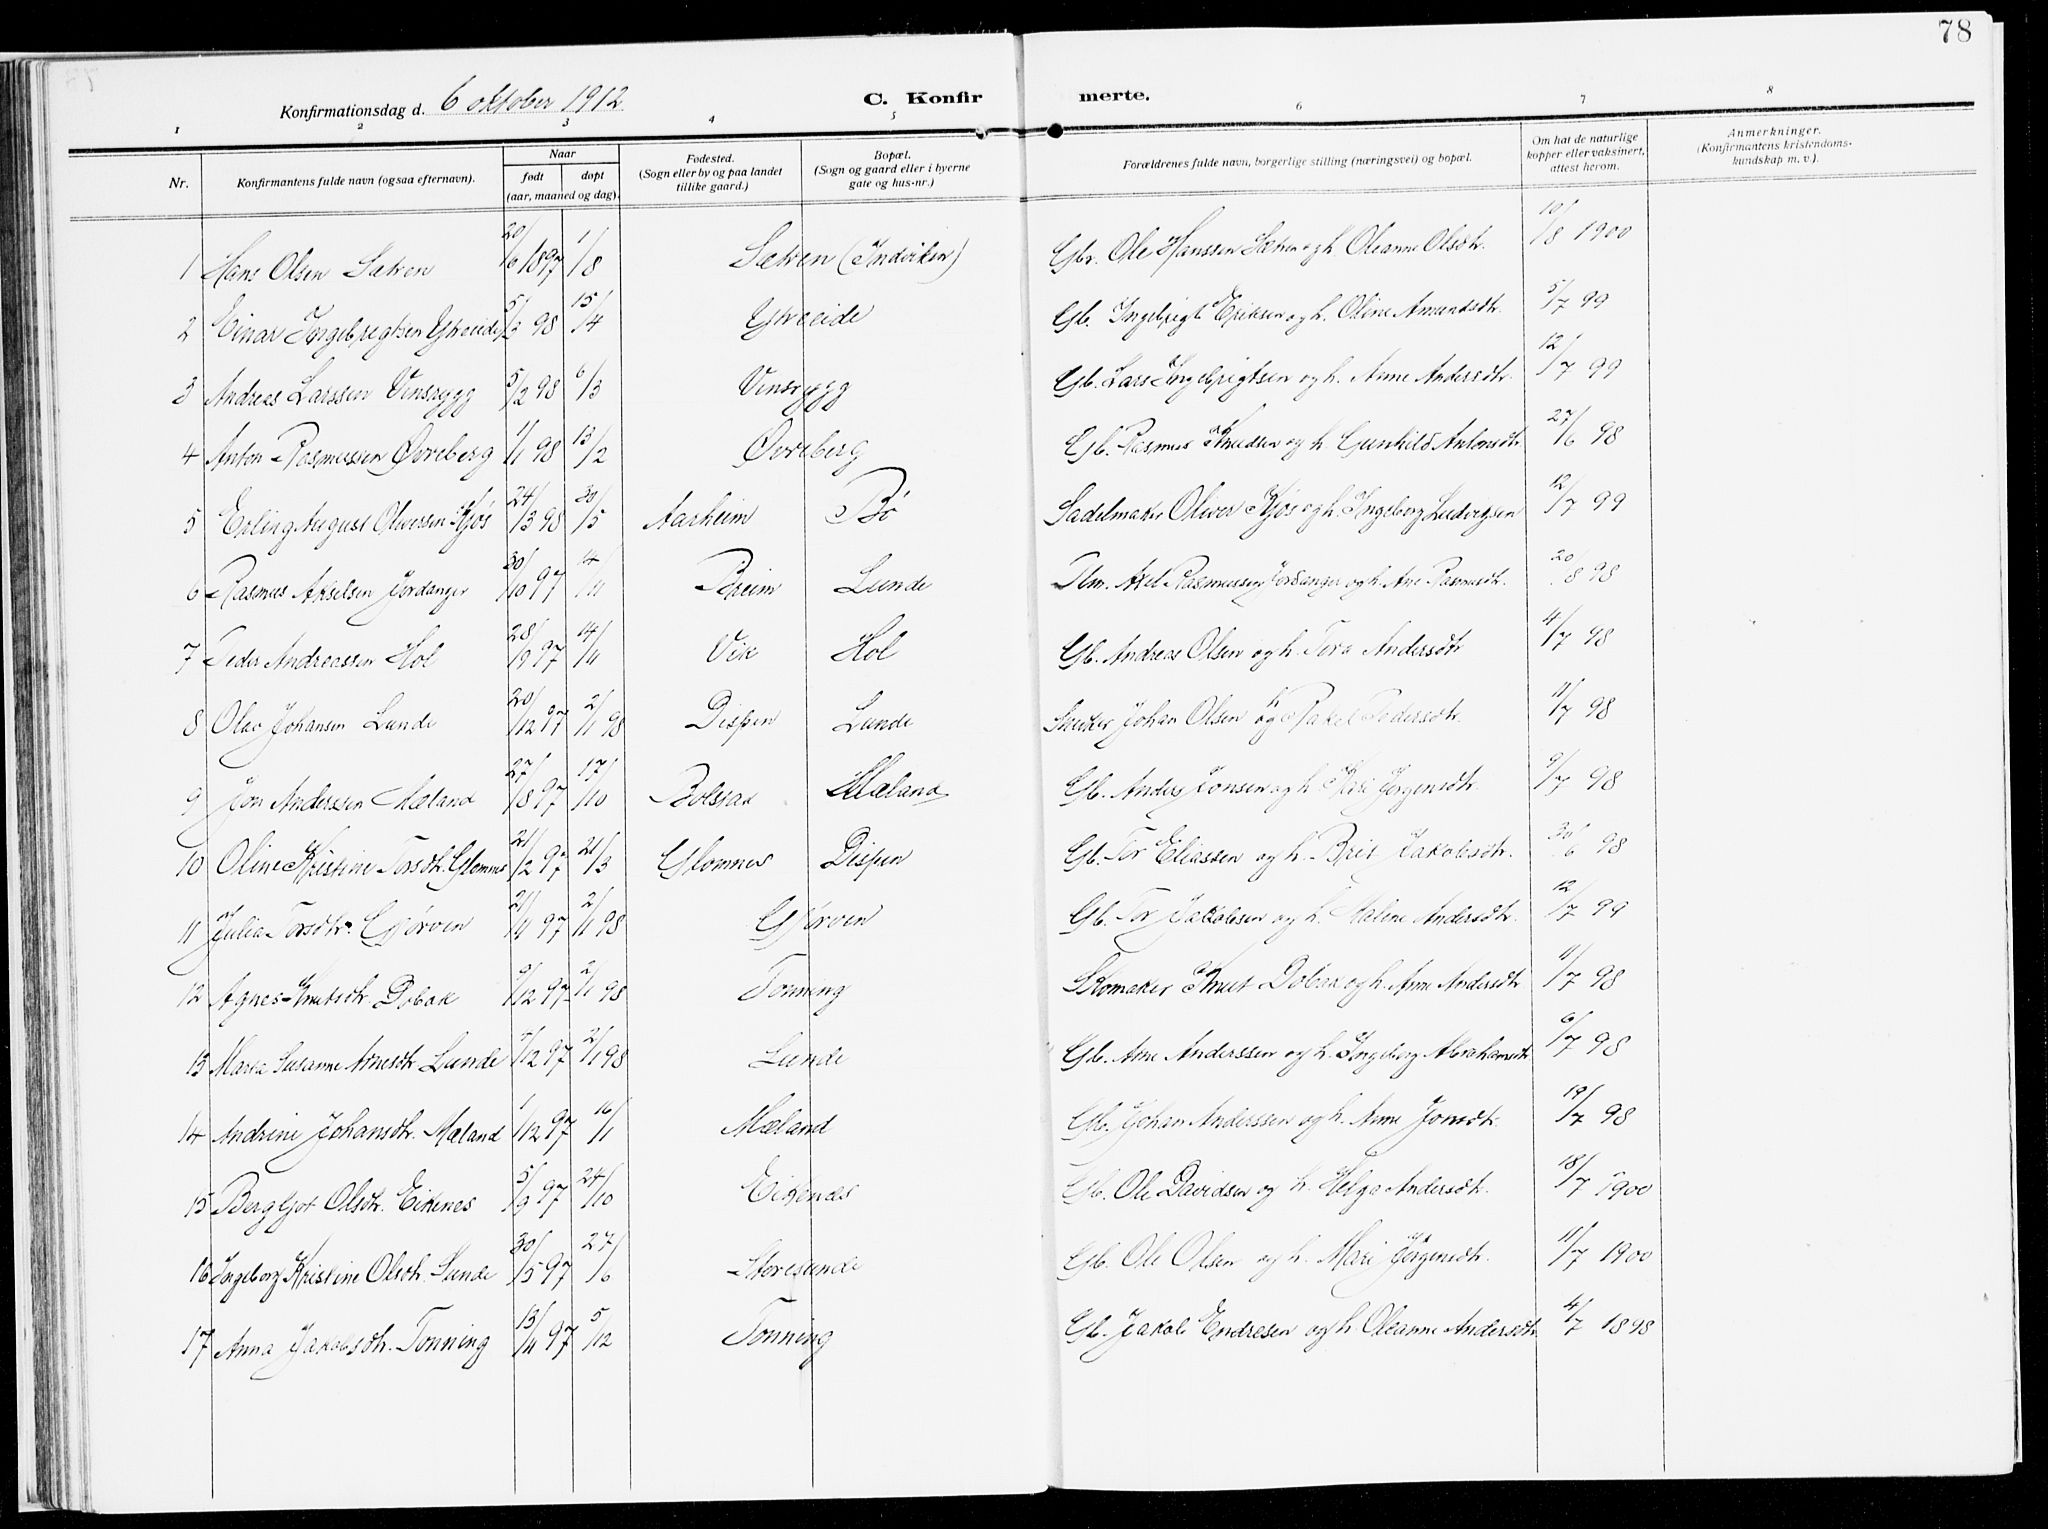 78
Konfirmationsdag d. 6 oktober 1912. C. Konfir merte.
1 2 3 4 5 6 7 8
Nr. Konfirmantens fulde navn (ogsaa efternavn). Naar født døpt (aar, maaned og dag). Fødested. (Sogn eller by og paa landet tillike gaard.) Bopæl. (Sogn og gaard eller i byerne gate og hus-nr.) Forældrenes fulde navn, borgerlige stilling (næringsvei) og bopæl. Om hat de naturlige kopper eller vaksinert, attest herom. Anmerkninger. (Konfirmantens kristendoms- kundskap m. v.).
1 Hans Olsen Sætren 20/6 1897 1/8 Sætren (Indviken) Gbr. Ole Hanssen Sætren og h. Oleanne Olsdtr. 10/8 1900
2 Einar Ingebrigtsen Ytreeide 5/3 98 15/4 Ytreeide Gb. Ingebrigt Eriksen og h. Oline Amundsdtr. 5/7 99
3 Andreas Larssen Vinsrygg 5/2 98 6/3 Vinsrygg Gb. Lars Ingebrigtsen og h. Anne Andersdtr. 12/7 99
4 Anton Rasmussen Øvreberg 1/1 98 13/2 Øvreberg Gb. Rasmus Knudsen og h. Gunhild Antonsdtr 27/6 98
5 Erling August Oliversen Kjøs 24/3 98 30/5 Aarheim Bø Sadelmaker Oliver Kjøs og h. Ingeborg Ludvigsen 12/7 99
6 Rasmus Akselsen Jordanger 30/10 97 14/11 Lunde Axel Rasmussen Jordanger og h. Ane Rasmusdtr. 20/8 98
7 Peder Andreassen Hol 28/9 97 14/11 Vik Hol Gb. Andreas Olsen og h. Tora Andersdtr 4/7 98
8 Olav Johansen Lunde 20/12 97 2/1 98 Dispen Lunde Snedker Johan Olsen og h. Rakel Pedersdtr. 11/7 98
9 Jon Anderssen Mæland 27/8 97 17/10 Bolstad Mæland Gb. Anders Jonsen og h. Mari Jørgensdtr. 9/7 98
10 Oline Kristine Torsdtr. Glomnes 21/2 97 21/3 Glomnes Dispen Gb. Tor Eliassen og h. Brit Jakobsdtr. 30/6 98
11 Julia Torsdtr. Gjørven 21/11 97 2/1 98 Gjørven Gb. Tor Jakobsen og h. Malene Andersdtr. 12/7 99
12 Agnes Knutsdtr. Dobak 9/12 97 2/1 98 Tonning Skomaker Knut Dobak og h. Anne Andersdtr 11/7 98
13 Maria Susanne Arnesdtr. Lunde 4/12 97 2/1 98 Lunde Gb. Arne Anderssen og h. Ingeborg Abrahamsdtr 6/7 98
14 Andrine Johansdtr. Mæland 1/12 97 16/1 Mæland Gb. Johan Anderssen og h. Anne Jonsdtr. 19/7 98
15 Bergljot Olsdtr. Eikenes 5/9 97 24/10 Eikenes Gb. Ole Davidsen og h. Helga Andersdtr. 18/7 1900
16 Ingeborg Kristine Olsdtr. Sunde 30/5 97 27/6 Storesunde Gb. Ole Olsen og h. Mari Jørgensdtr. 11/7 1900
17 Anna Jakobsdtr. Tonning 13/11 97 5/12 Tonning Gb. Jakob Endresen og h. Oleanne Andersdtr. 4/7 1898